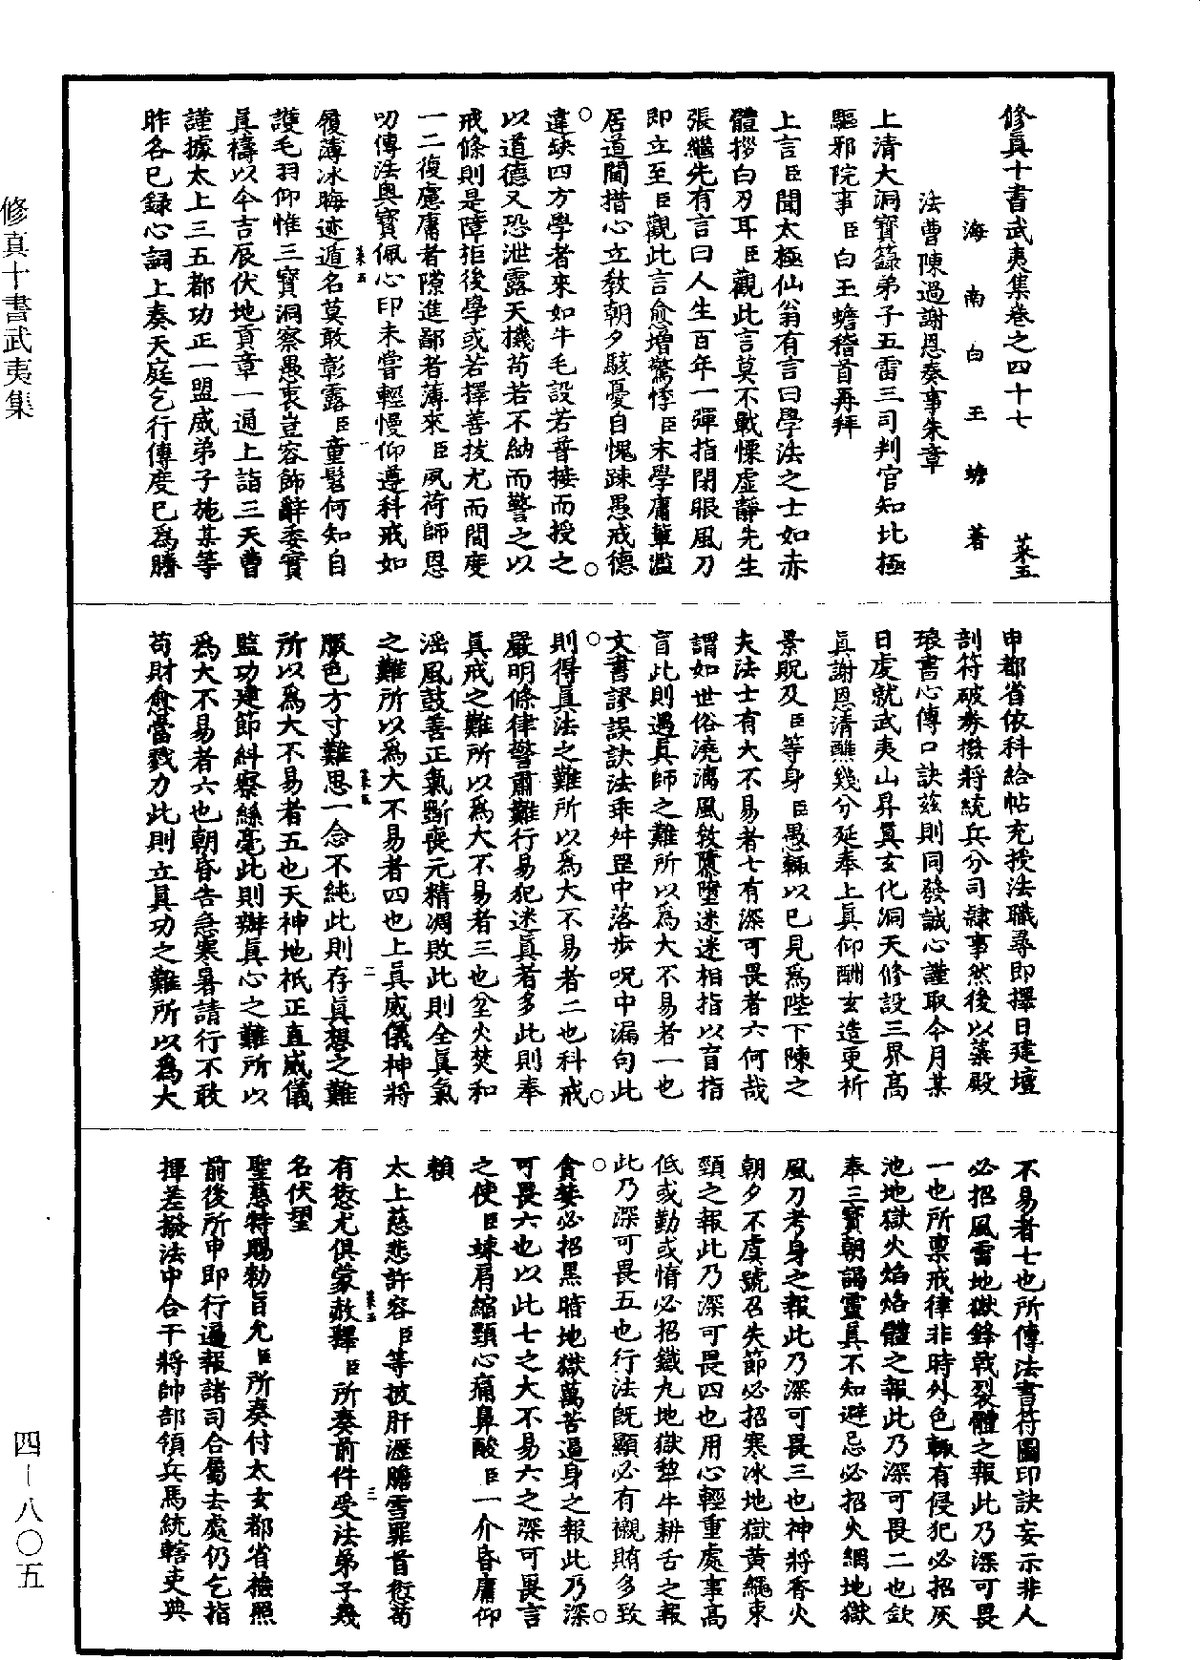 修真十書武夷集卷之四十七　菜五
海南白玉蟾著
法曹陳過謝恩奏事朱章
上清大洞寶籙弟子五雷三司判官知北極
驅邪院事臣白玉蟾稽首再拜
上言臣聞太極仙翁有言曰學法之士如赤
體拶白刃耳臣觀此言莫不戰慄虛靜先生
張繼先有言曰人生百年一彈指閉眼風刀
即立至臣觀此言愈增驚悸臣末學庸輩濫
居道閫措心立教朝夕駭憂自愧踈愚戒德
違缺四方學者來如牛毛設若普接而授之
以道德又恐泄露天機苟若不納而警之以
戒條則是障拒後學或若擇善拔尤而間度
一二復慮庸者隙進鄙者薄來臣夙荷師恩
叨傳法奧寶佩心印未嘗輕慢仰遵科戒如
菜五　一
履薄冰晦迹遁名莫敢彰露臣童髫何知自
護毛羽仰惟三寶洞察愚衷豈容飾辭委實
真禱以今吉辰伏地貢章一通上詣三天曹
謹據太上三五都功正一盟威弟子施某等
昨各已錄心詞上奏天庭乞行傳度已為謄
申都省依科給帖充授法職尋即擇日建壇
剖符破券撥將統兵分司隸事然後以蘂殿
琅書心傳口訣茲則同發誠心謹取今月某
日虔就武夷山昇真玄化洞天修設三界高
真謝恩清醮幾分延奉上真仰酬玄造更祈
景貺及臣等身臣愚輒以已見為陛下陳之
夫法士有大不易者七有深可畏者六何哉
謂如世俗澆漓風教隳墮迷迷相指以盲指
盲此則遇真師之難所以為大不易者一也
文書謬誤訣法乖舛罡中落步呪中漏句此
則得真法之難所以為大不易者二也科戒
嚴明條律警肅難行易犯迷真者多此則奉
真戒之難所以為大不易者三也坌火焚和
淫風鼓善正氣斲喪元精凋敗此則全真氣
之難所以為大不易者四也上真威儀神將
菜五　二
服色方寸難思一念不純此則存真想之難
所以為大不易者五也天神地祇正直威儀
監功建節糾察絲毫此則辦真心之難所以
為大不易者六也朝昏告急寒暑請行不敢
苟財愈當戮力此則立真功之難所以為大
不易者七也所傳法書符圖印訣妄示非人
必招風雷地獄鋒戟裂體之報此乃深可畏
一也所禀戒律非時外色輒有侵犯必招灰
池地獄火焰烙體之報此乃深可畏二也欽
奉三寶朝謁靈真不知避忌必招火網地獄
風刀考身之報此乃深可畏三也神將香火
朝夕不虞號召失節必招寒冰地獄黃繩束
頸之報此乃深可畏四也用心輕重處事高
低或勤或惰必招鐵九地獄犂牛耕舌之報
此乃深可畏五也行法旣顯必有襯賄多致
貪婪必招黑暗地獄萬苦逼身之報此乃深
可畏六也以此七之大不易六之深可畏言
之使臣竦肩縮頸心痛鼻酸臣一介昏庸仰
賴
太上慈悲許容臣等披肝瀝膽雪罪首愆苟
菜五　三
有愆尤俱蒙赦釋臣所奏前件受法弟子幾
名伏望
聖慈特賜勑旨允臣所奏付太玄都省撿照
前後所申即行遍報諸司合屬去處仍乞指
揮差撥法中合干將帥部領兵馬統轄吏典
修真十書武夷集
四—八〇五